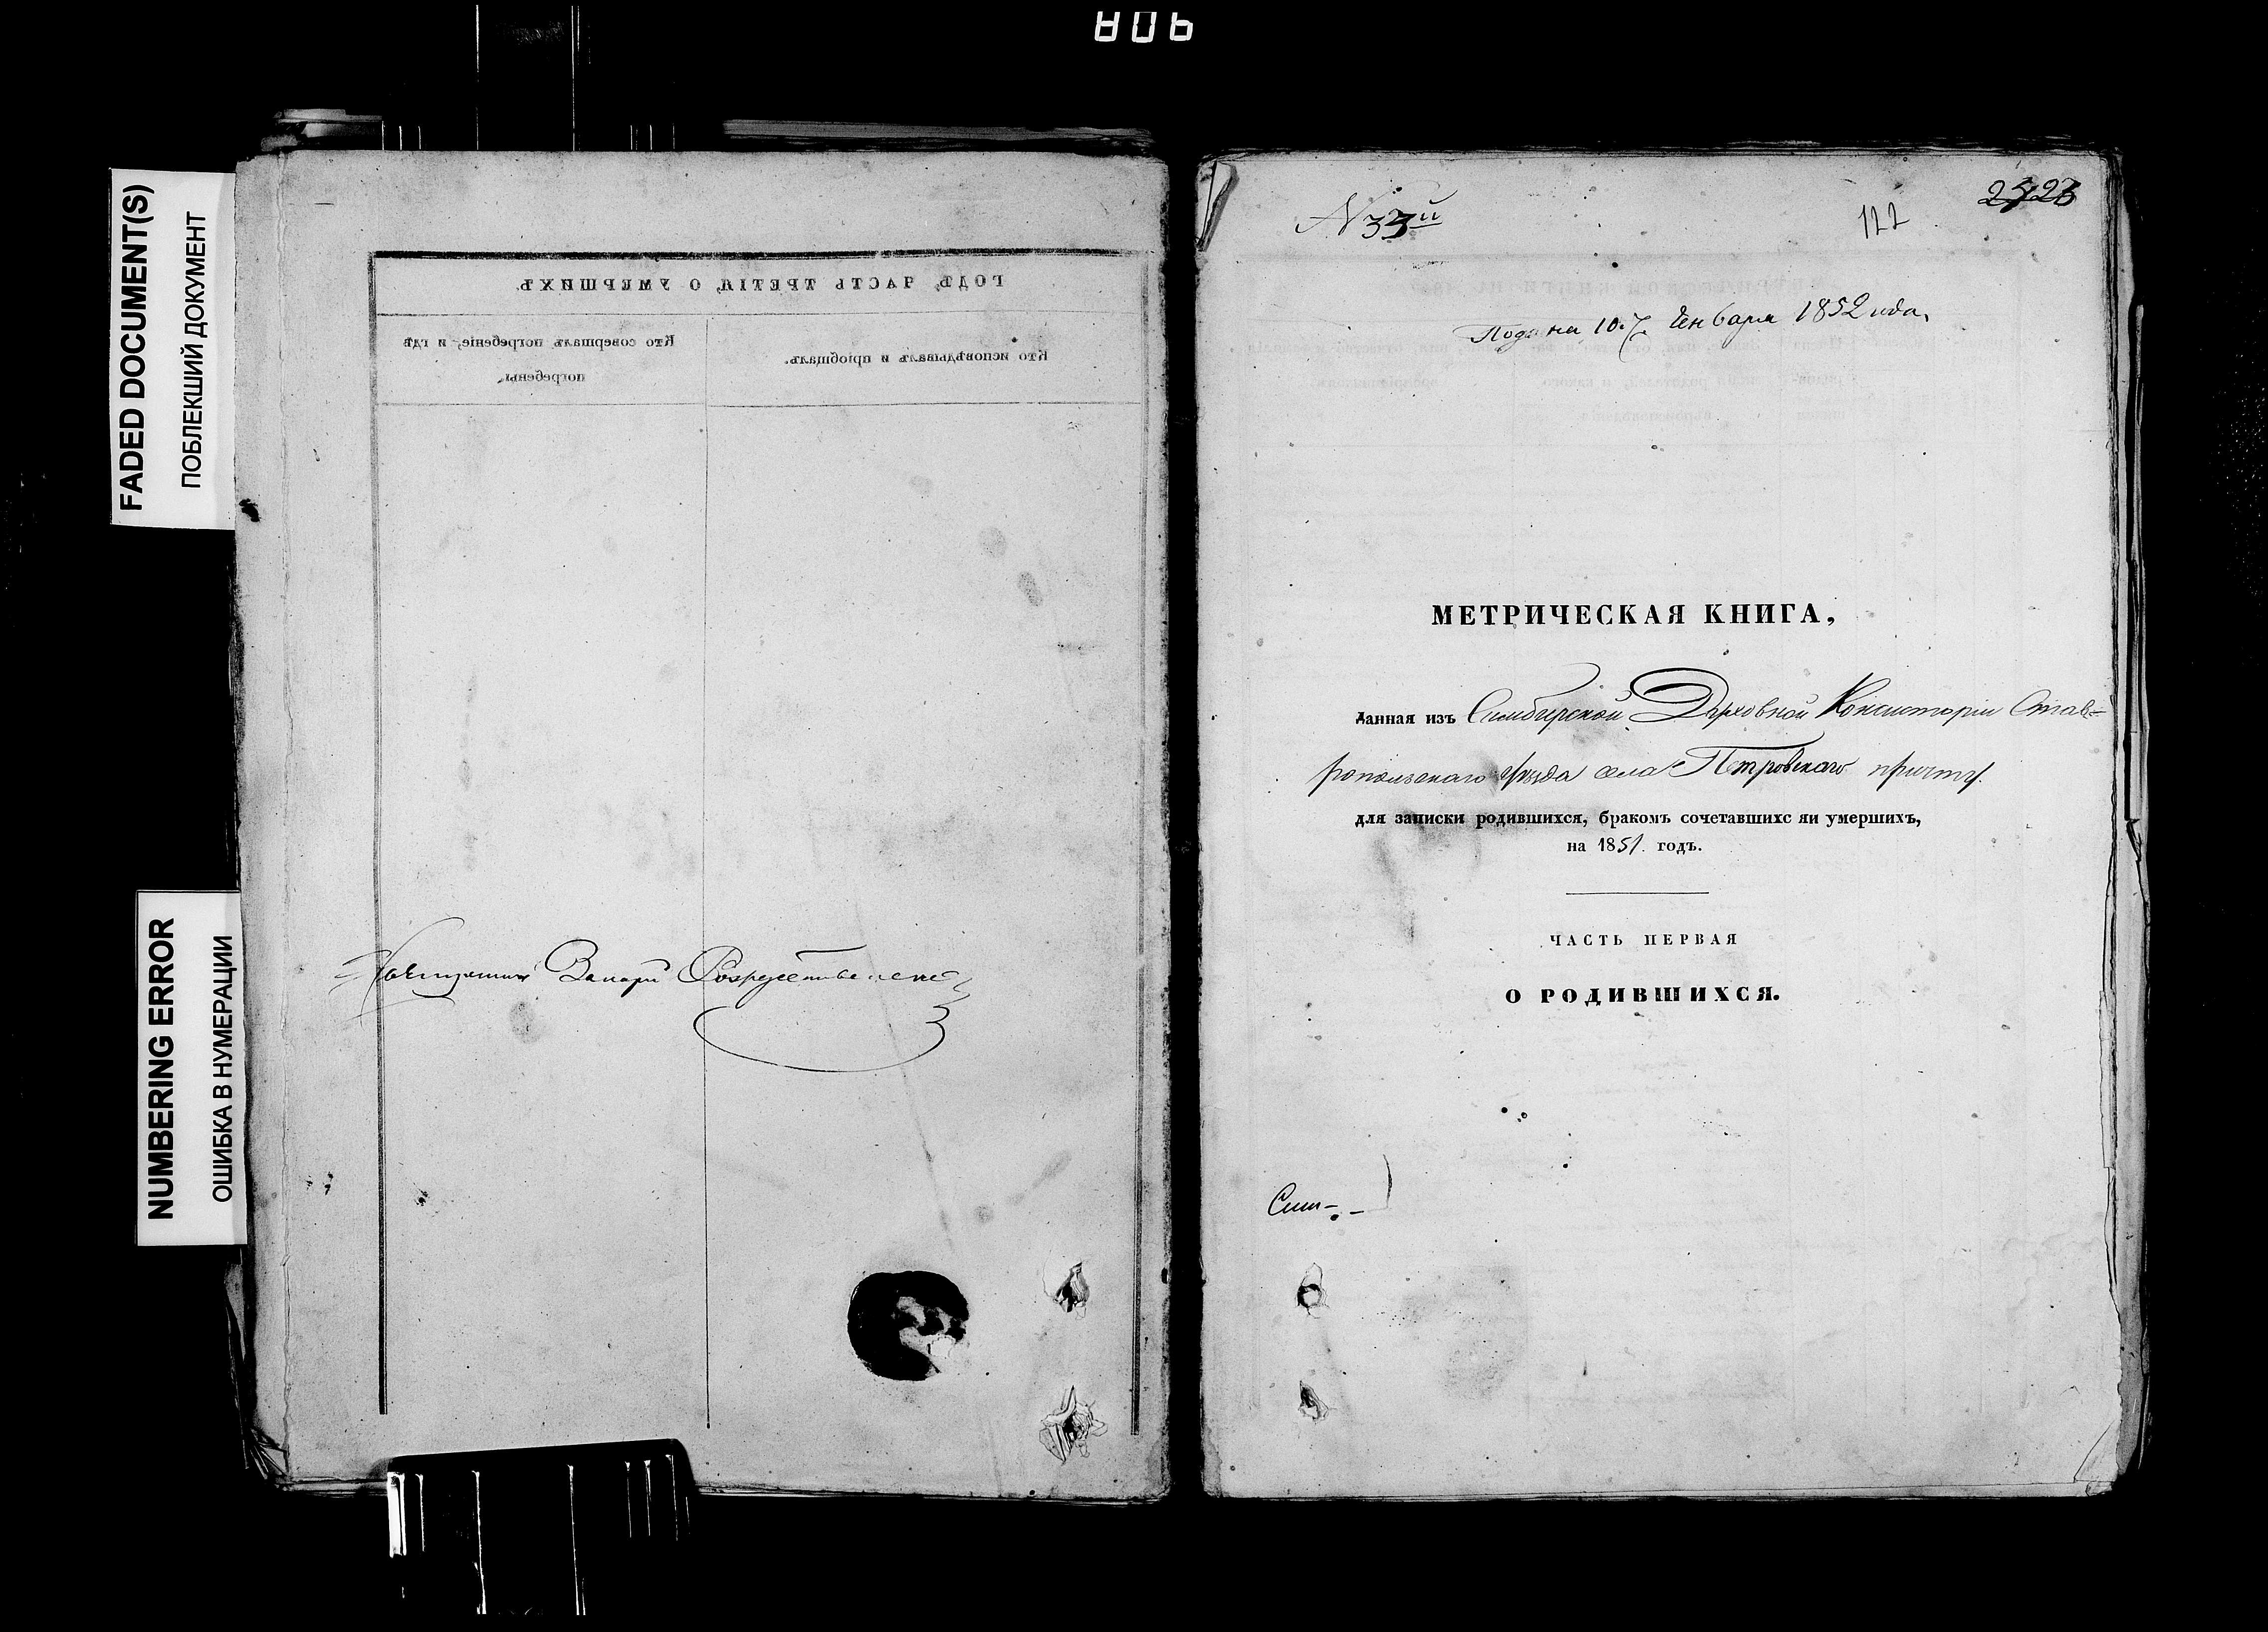 FADED DOCUMENT(S)
ПОБЛЕКШИЙ ДОКУМЕНТ
NUMBERING ERROR
ОШИБКА В НУМЕРАЦИИ
ГОДЪ, ЧАСТЬ ТРЕТІЯ, О УМЕРШИХЪ.
Кто исповѣдывалъ и пріобщалъ.
Кто совершалъ погребеніе, и гдѣ
погребены.
N 33й
122
Подана 10. Генваря 1852 года.
МЕТРИЧЕСКАЯ КНИГА,
данная изъ Симбирской Духовной Консисторіи Став-
ропольскаго уѣзда села Петровскаго причту.
для записки родившихся, бракомъ сочетавшихс яи умершихъ,
на 1851. годъ.
ЧАСТЬ ПЕРВАЯ
О РОДИВШИХСЯ.